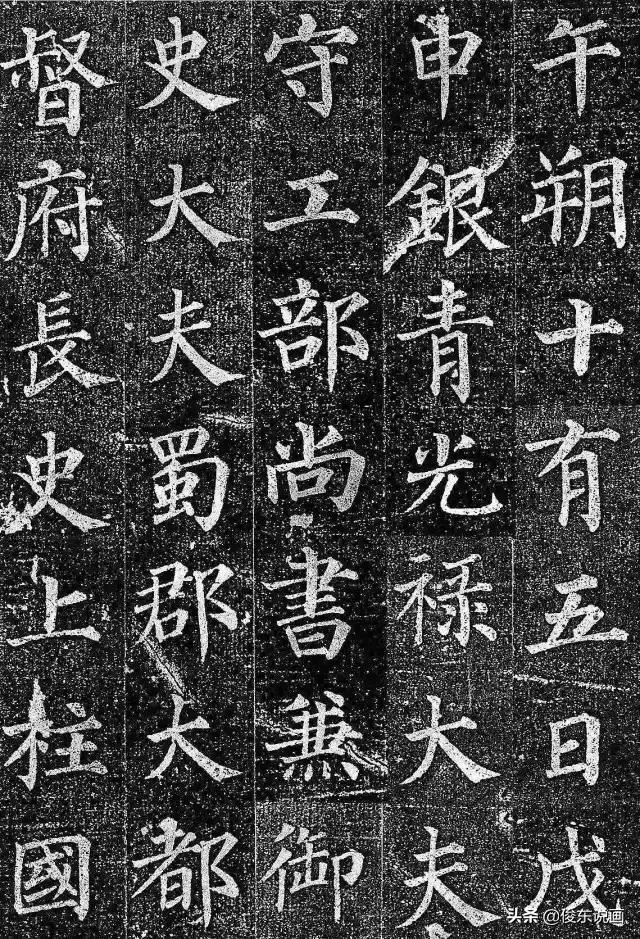 午朔十有五日戊
申銀青光禄大夫
守工部尚書兼御
史大夫蜀郡大都
督府長史上柱國
头条 @俊东说画